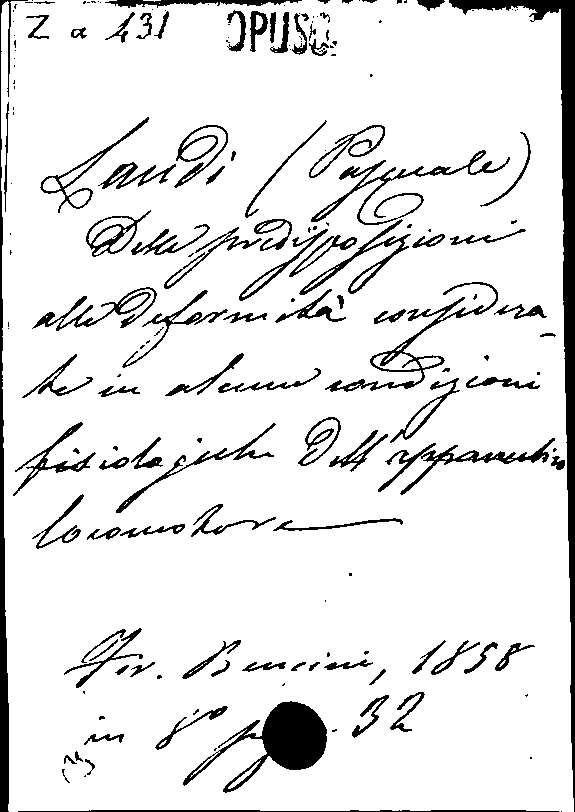 Z a 431 OPUSC.
Landi (Pasquale)
Delle predisposizioni
alle deformità considera-
te in alcune condizioni
fisiologiche dell'apparecchio
locomotore
Fir. Bencini, 1858
in 8º pag. 32